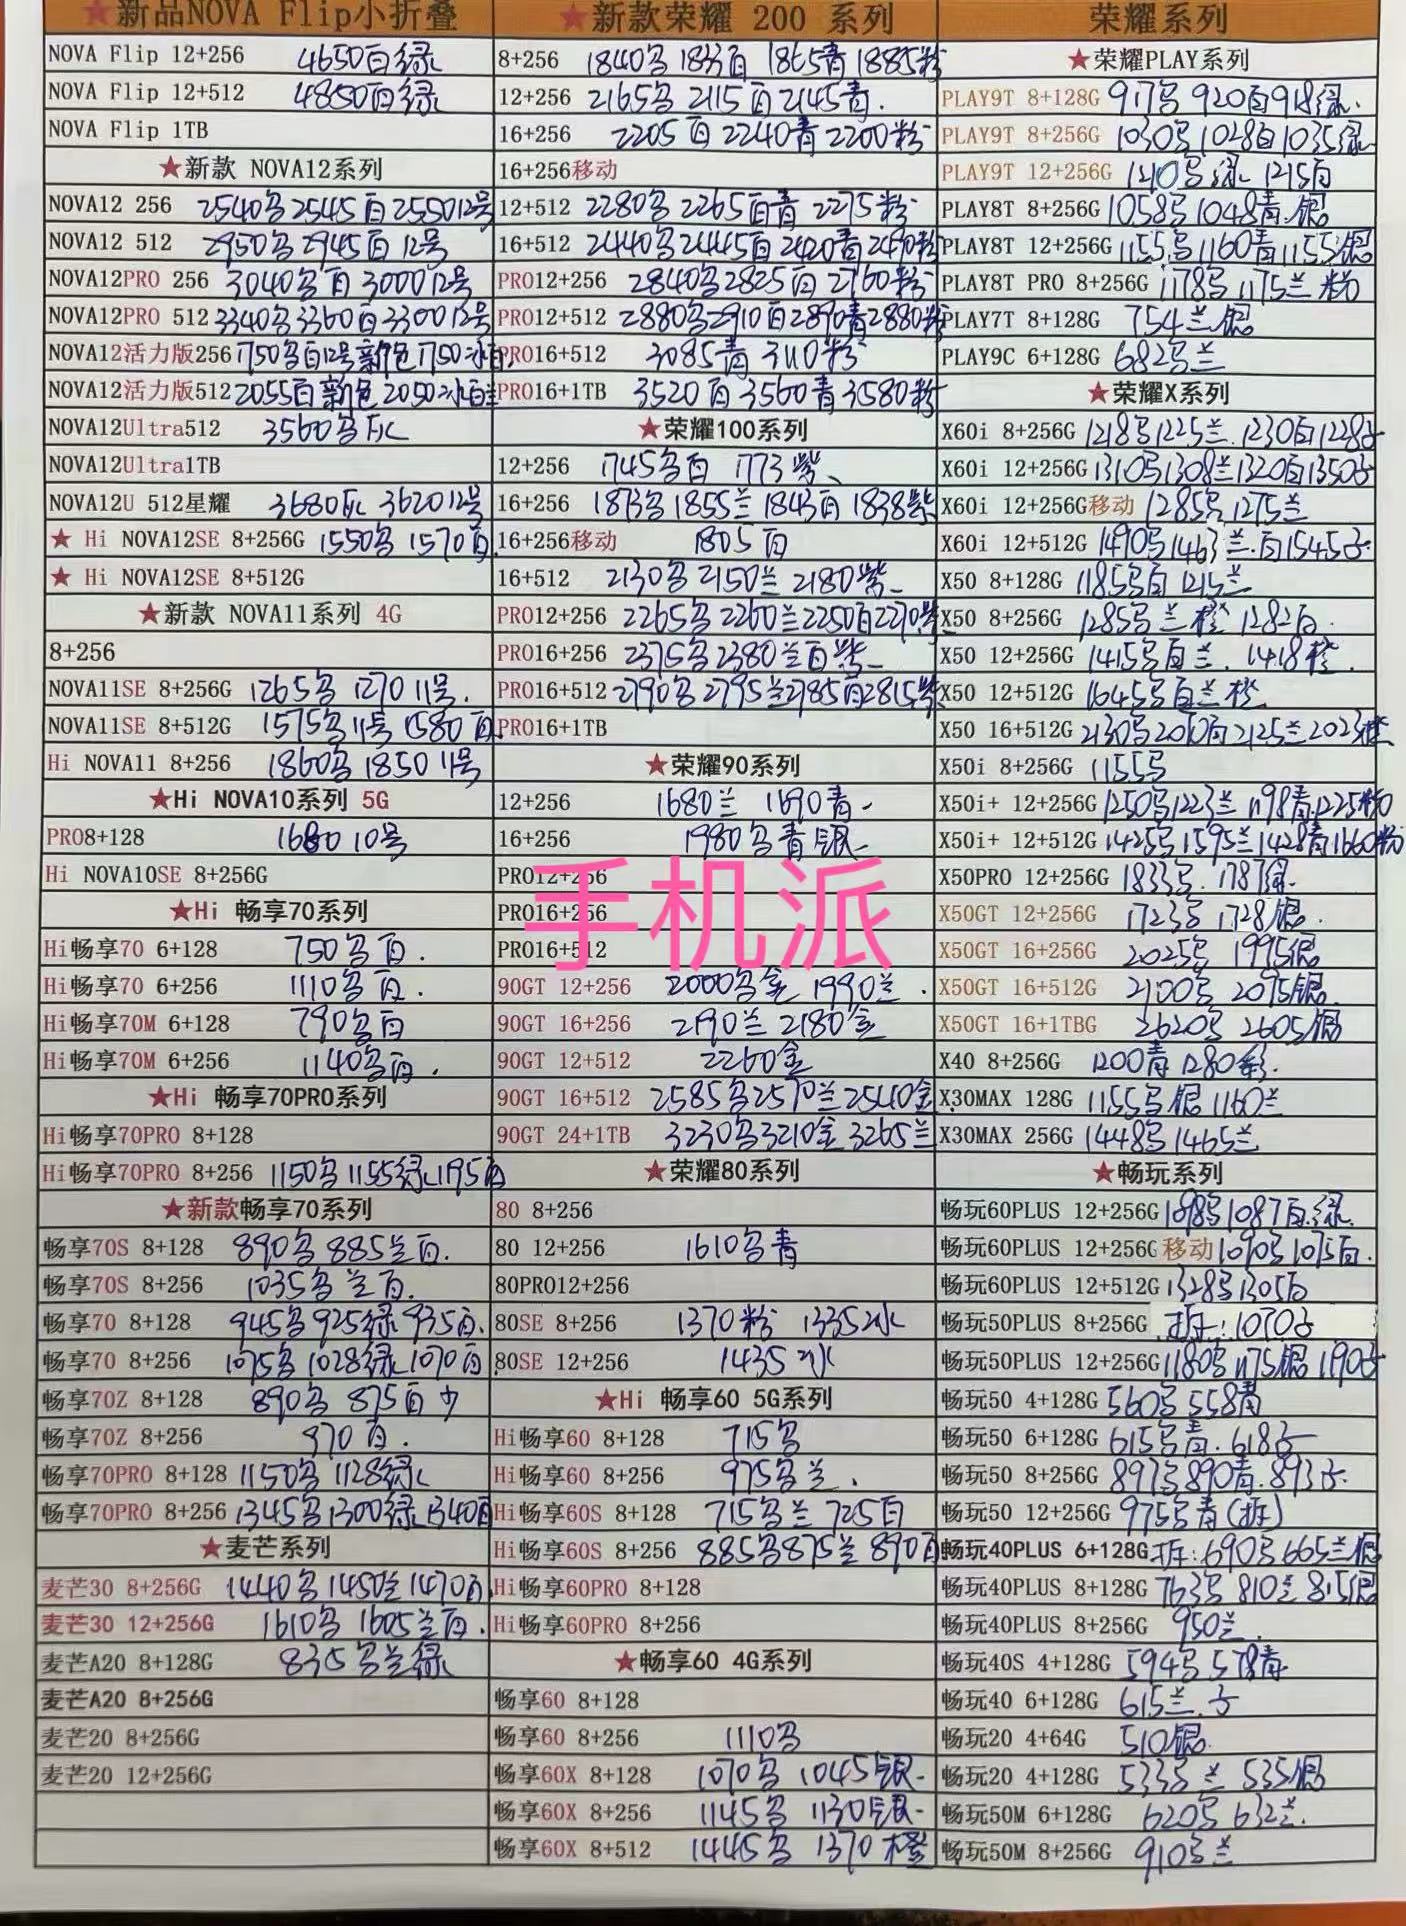 ★新品NOVA Flip小折叠
NOVA Flip 12+256 4650白绿
NOVA Flip 12+512 4850白绿
NOVA Flip 1TB
★新款 NOVA12系列
NOVA12 256 2540黑2545白255012号
NOVA12 512 2950黑2945白12号
NOVA12PRO 256 3040黑白300012号
NOVA12PRO 512 3340黑3360白330012号
NOVA12活力版256 1750黑白12号新色1750冰白
NOVA12活力版512 2055白新色2050冰白
NOVA12Ultra512 3560黑灰
NOVA12Ultra1TB
NOVA12U 512星耀 3680灰362012号
★ Hi NOVA12SE 8+256G 1550黑 1570白
★ Hi NOVA12SE 8+512G
★新款 NOVA11系列 4G
8+256
NOVA11SE 8+256G 1265黑 1270 11号.
NOVA11SE 8+512G 1575黑11号 1580白
Hi NOVA11 8+256 1860黑1850 11号
★Hi NOVA10系列 5G
PRO8+128 1680 10号
Hi NOVA10SE 8+256G
★Hi 畅享70系列
Hi畅享70 6+128 750黑白.
Hi畅享70 6+256 1110黑白.
Hi畅享70M 6+128 790黑白
Hi畅享70M 6+256 1140黑白.
★Hi 畅享70PRO系列
Hi畅享70PRO 8+128
Hi畅享70PRO 8+256 1150黑1155绿1195白
★新款畅享70系列
畅享70S 8+128 890黑885兰白.
畅享70S 8+256 1035黑兰白.
畅享70 8+128 945黑925绿935白.
畅享70 8+256 1075黑1028绿1070白
畅享70Z 8+128 890黑 875白少
畅享70Z 8+256 970白.
畅享70PRO 8+128 1150黑1128绿
畅享70PRO 8+256 1345黑1300绿1340白
★麦芒系列
麦芒30 8+256G 1440黑1450兰1470白
麦芒30 12+256G 1610黑 1605兰白.
麦芒A20 8+128G 835黑兰绿
麦芒A20 8+256G
麦芒20 8+256G
麦芒20 12+256G
★新款荣耀 200 系列
8+256 1840黑1833白1865青1885粉
12+256 2165黑2115白2145青.
16+256 2205白2240青2200粉
16+256移动
12+512 2280黑2265白青2275粉
16+512 2440黑2445白2420青2490粉
PRO12+256 2840黑2825白2760粉
PRO12+512 2880黑2910白2890青2880粉
PRO16+512 3085青3110粉
PRO16+1TB 3520白3560青3580粉
★荣耀100系列
12+256 1745黑白 1773紫、
16+256 1873黑1855兰1843白1838紫
16+256移动 1805白
16+512 2130黑2150兰2180紫
PRO12+256 2265黑2260兰2250白2270紫
PRO16+256 2375黑2380兰白紫
PRO16+512 2790黑2795兰2785白2815紫
PRO16+1TB
★荣耀90系列
12+256 1680兰 1690青
16+256 1980黑青银
PRO12+256
PRO16+256
PRO16+512
手机派
90GT 12+256 2000黑金1990兰.
90GT 16+256 2190兰2180金
90GT 12+512 2260金
90GT 16+512 2585黑2570兰2540金
90GT 24+1TB 3230黑3210金3265兰
★荣耀80系列
80 8+256
80 12+256 1610黑青
80PRO12+256
80SE 8+256 1370粉 1335冰
80SE 12+256 1435冰
★Hi 畅享60 5G系列
Hi畅享60 8+128 715黑
Hi畅享60 8+256 975黑兰.
Hi畅享60S 8+128 715黑兰725白
Hi畅享60S 8+256 885黑875兰890白
Hi畅享60PRO 8+128
Hi畅享60PRO 8+256
★畅享60 4G系列
畅享60 8+128
畅享60 8+256 1110黑
畅享60X 8+128 1070黑 1045银
畅享60X 8+256 1145黑 1130银
畅享60X 8+512 1445黑 1370橙
荣耀系列
★荣耀PLAY系列
PLAY9T 8+128G 917黑920白918绿.
PLAY9T 8+256G 1030黑1028白1035绿
PLAY9T 12+256G 1210黑绿1215白
PLAY8T 8+256G 1058黑1048青.银
PLAY8T 12+256G 1155黑1160青1155银
PLAY8T PRO 8+256G 1178黑1175兰粉
PLAY7T 8+128G 754兰银
PLAY9C 6+128G 682黑兰
★荣耀X系列
X60i 8+256G 1218黑1225兰.1230白1228紫
X60i 12+256G 1310黑1308兰1320白1350紫
X60i 12+256G移动 1285黑1275兰
X60i 12+512G 1490黑1463兰.白1545紫
X50 8+128G 1185黑白1215兰
X50 8+256G 1285黑兰橙1282白.
X50 12+256G 1415黑白兰.1418橙.
X50 12+512G 1645黑白兰橙
X50 16+512G 2130黑2010白2125兰2023橙
X50i 8+256G 1155黑
X50i+ 12+256G 1250黑1223兰1198青.1225粉
X50i+ 12+512G 1425黑1595兰1428青1660粉
X50PRO 12+256G 1833黑.1787绿.
X50GT 12+256G 1723黑1728银.
X50GT 16+256G 2025黑 1995银
X50GT 16+512G 2100黑 2075银
X50GT 16+1TBG 2620黑 2605银
X40 8+256G 1200青1280彩.
X30MAX 128G 1155黑银1160兰
X30MAX 256G 1448黑1465兰
★畅玩系列
畅玩60PLUS 12+256G 1098黑1087白.绿.
畅玩60PLUS 12+256G移动 1090黑1075白.
畅玩60PLUS 12+512G 1328黑1305白
畅玩50PLUS 8+256G 拆:1070紫
畅玩50PLUS 12+256G 1180黑1175银1190紫
畅玩50 4+128G 560黑558青
畅玩50 6+128G 615黑青.618紫
畅玩50 8+256G 897黑890青.893紫
畅玩50 12+256G 975黑青(拆)
畅玩40PLUS 6+128G 拆:690黑665兰银
畅玩40PLUS 8+128G 763黑810兰815银
畅玩40PLUS 8+256G 950兰.
畅玩40S 4+128G 594黑578青
畅玩40 6+128G 615兰.紫
畅玩20 4+64G 510银
畅玩20 4+128G 533黑兰 535银
畅玩50M 6+128G 620黑632兰.
畅玩50M 8+256G 910黑兰